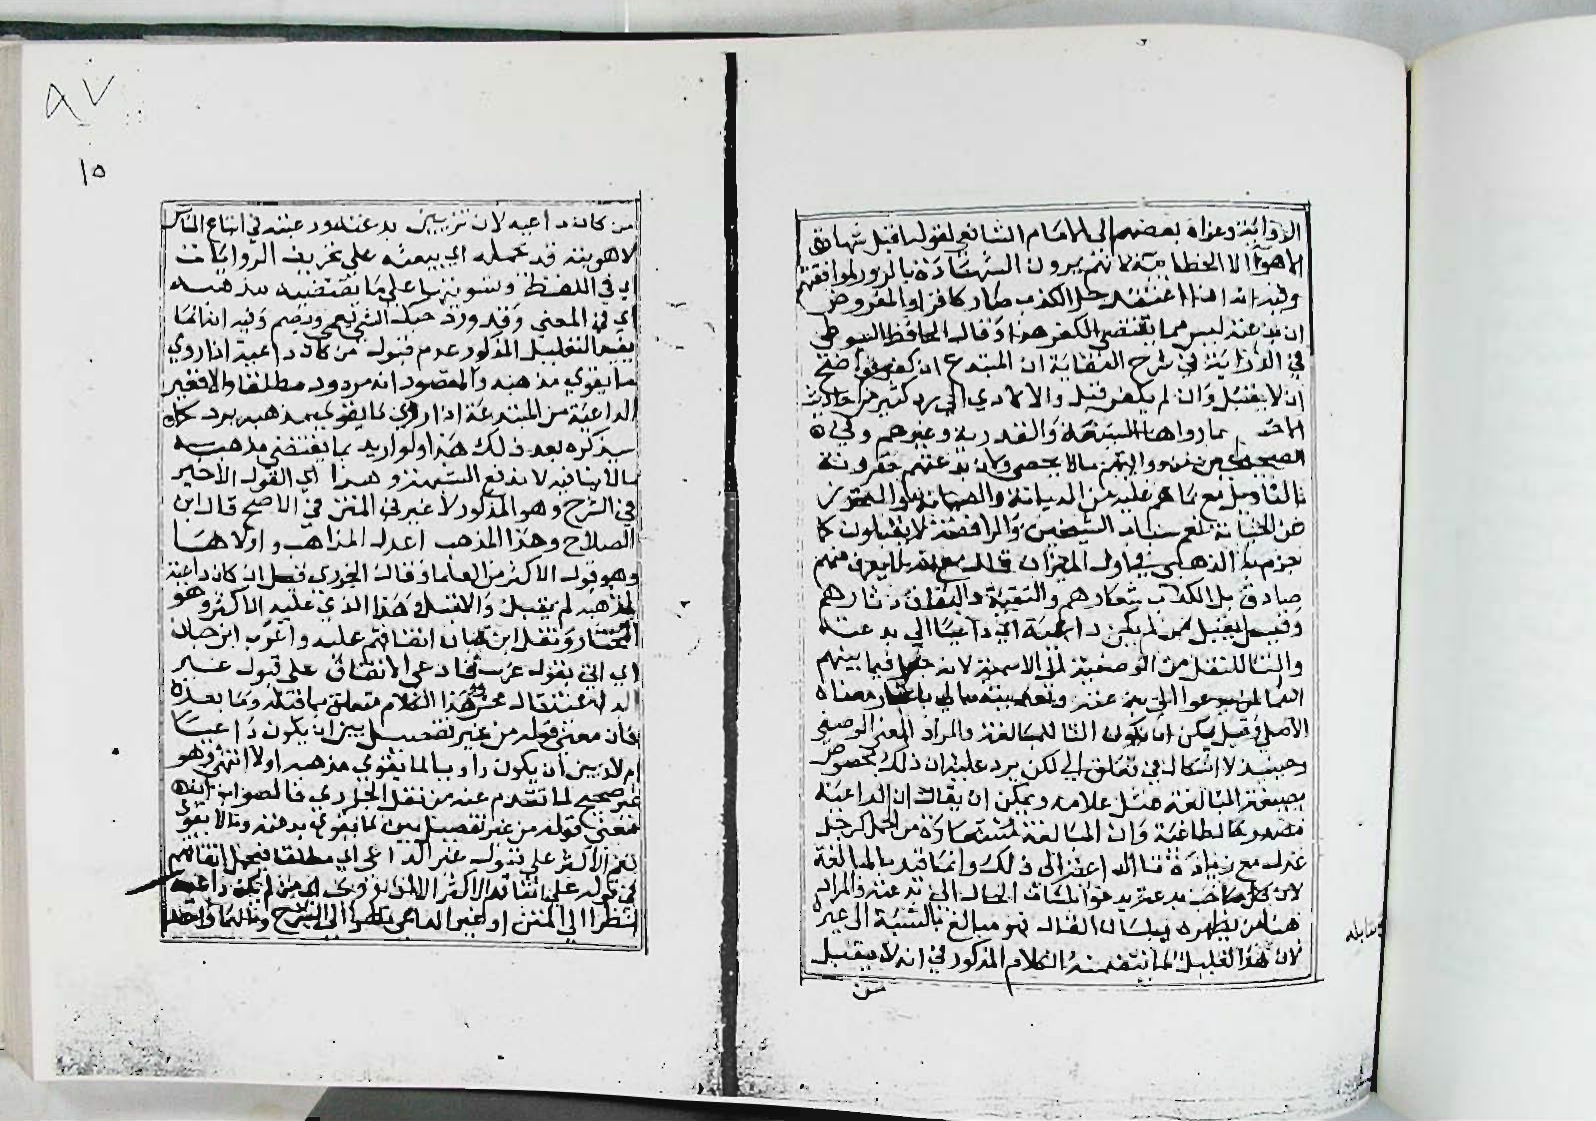 الرواية وعزاه بعضهم الى الامام الشافعي لقوله اقبل شهادة
الاهواء الا الخطابية لانهم يرون الشهادة بالزور لموافقتهم
وفيه انه اذا اعتقد حل الكذب صار كافرا والمفروض
ان بدعته ليس مما يقتضي الكفر هذا وقال الحافظ السيوطي
في شرح النقاية ان المبتدع ان كفر فواضح
ان لا يقبل وان لم يكفر قبل والا لادي الى رد كثير من احاديث
الاحكام مما رواها الشيعة والقدرية وغيرهم وفي
الصحيحين من روايتهم مالا يحصى ولان بدعتهم مقرونة
بالتاويل مع ما هم عليه من الديانة والصيانة والتحرز
عن الخيانة نعم ساب الشيخين والرافضة لا يقبلون كما
جزم به الذهبي في اول الميزان قال مع انه لا يعرف منهم
صادق بل الكذب شعارهم والتقية والنفاق دثارهم
وقيل يقبل من لم يكن داعية اي داعيا الى بدعته
والتا للنقل من الوصفية الى الاسمية لانه جعل فيما بينهم
اسما لمن يدعو الى بدعته وتعديته بالى باعتبار معناه
الاصلي وقيل يمكن ان يكون التا للمبالغة والمراد المعنى الوصفي
وحينئذ لا اشكال في تعلق الى لكن يرد عليه ان ذلك مخصوص
بصيغة المبالغة مثل علامة ويمكن ان يقال ان الداعية
مصدر كالطاغية وان المبالغة مستفادة من الحمل كرجل
عدل مع زيادة تاء الداعية الى ذلك وانما قيد بالمبالغة
لان كل صاحب بدعة يدعو بلسان الحال الى بدعته والمراد
هنا من يظهره بلسان القال فهو مبالغ بالنسبة الى غيره
لان هذا القليل لما يتضمنه الكلام المذكور في انه لا يقبل
من
من كان داعية لان تزيين بدعته ورغبته في اتباع الناس
لاهويته قد يحمله اي يبعثه على تحريف الروايات
اي في اللفظ وتسويتها على ما يقتضيه مذهبه
اي في المعنى وقد ورد حبك الشي يعمي ويصم وفيه انه انما
يفيد التعليل المذكور عدم قبول من كان داعية اذا روي
ما يقوي مذهبه والمقصود انه مردود مطلقا والا فغير
الداعية من المبتدعة اذا روى ما يقوي مذهبه يرد كما
سيذكره بعد ذلك هذا ولو اريد بما يقتضي مذهبه
مالا ينافيه لا ندفع الشبهة وهذا اي القول الاخير
في الشرح وهو المذكور لا غير في المتن في الاصح قال ابن
الصلاح وهذا المذهب اعدل المذاهب واولاها
وهو قول الاكثر من العلما وقال الجزري فصل ان كان داعية
لمذهبه لم يقبل والا قبل وهذا الذي عليه الاكثر وهو
المختار ونقل ابن حبان اتفاقهم عليه واغرب ابن حبان
اي اتى بقول غريب فادعى الاتفاق على قبول غير
الداعية قال محشي هذا الكلام متعلق بما قبله وما بعده
فان معنى قوله من غير تفصيل بين ان يكون داعيا
ام لا وبين ان يكون راويا لما يقوي مذهبه اولا انتهى وهو
غير صحيح لما تقدم عنه من نقل الجزري فالصواب انه
معنى قوله من غير تفصيل بين ما يقوي بدعته وما لا يقوي
نعم الاكثر على قبول غير الداعي اي مطلقا فيحمل اتفاقهم
في قوله على اتفاق الاكثر الا ان يروي اي من لم يكن داعية
نظرا الى المتن او غير الداعي نظرا الى الشرح ومالهما واحد
٩٧
١٥